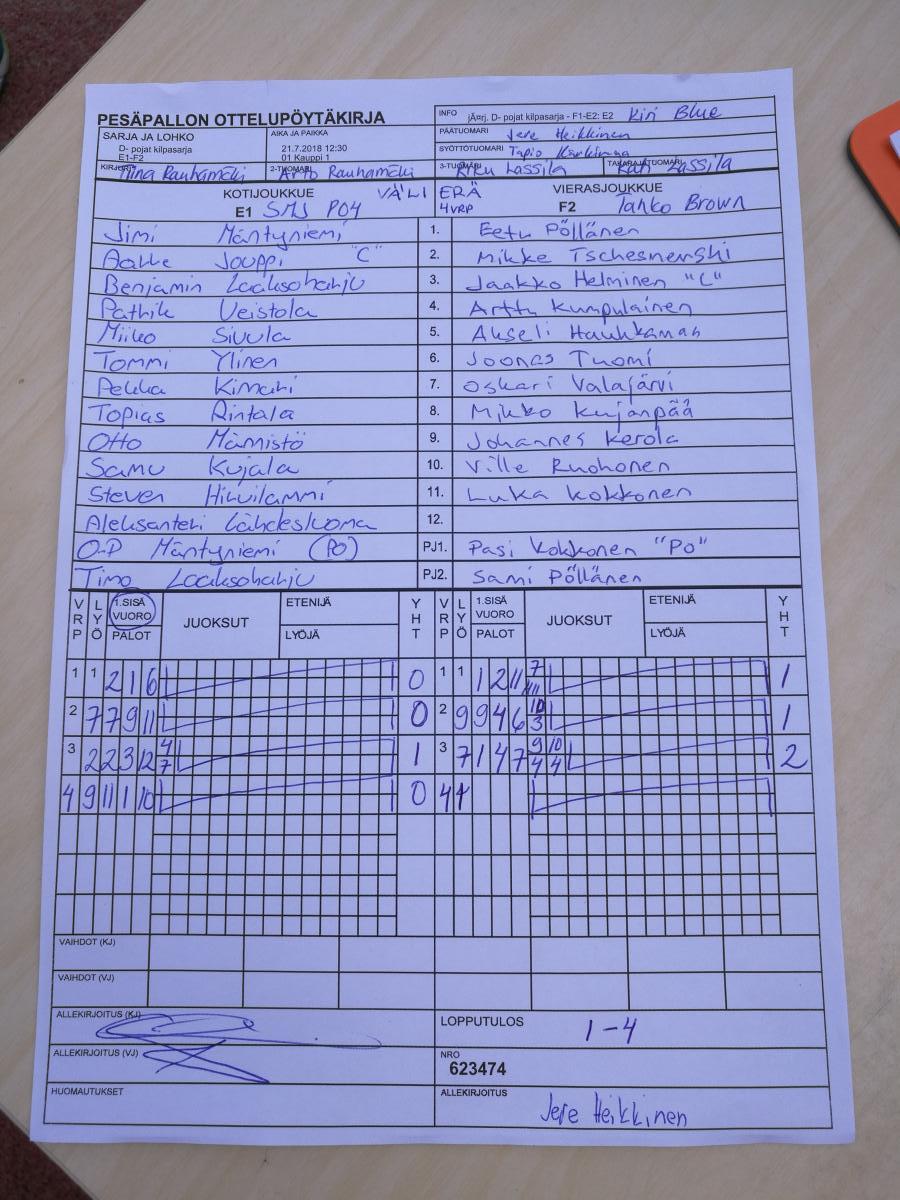 PESÄPALLON OTTELUPÖYTÄKIRJA
INFO jÄ¤rj. D- pojat kilpasarja - F1-E2: E2 Kiri Blue
SARJA JA LOHKO
D- pojat kilpasarja
E1-F2
AIKA JA PAIKKA
21.7.2018 12:30
01 Kauppi 1
PÄÄTUOMARI Jere Heikkinen
SYÖTTÖTUOMARI Tapio
KIRJURI Tiina Rauhamäki
2-TUOMARI Arto Rauhamäki
3-TUOMARI Riku Lassila
TAKARAJATUOMARI Kati Lassila
KOTIJOUKKUE VÄLI ERÄ VIERASJOUKKUE
E1 SMJ PO4 4VRP F2 Tahko Brown
Jimi Mäntyniemi 1. Eetu Pöllänen
Aatte Jouppi "C" 2. Mikke Tschesnerski
Benjamin Laaksoharju 3. Jaakko Helminen "C"
Pathik Veistola 4. Arttu Kumpulainen
Miiko Sivula 5. Akseli Haukkamaa
Tommi Ylinen 6. Joonas Tuomi
Pekka Kimari 7. Oskari Valajärvi
Topias Rintala 8. Mikko Kujanpää
Otto Männistö 9. Johannes Kerola
Samu Kujala 10. Ville Ruohonen
Steven Hiuilammi 11. Luka Kokkonen
Aleksanteri Lähdesluoma 12.
O-P Mäntyniemi (PO) PJ1. Pasi Kokkonen "Po"
Timo Laaksoharju PJ2. Sami Pöllänen
VRP LYÖ 1.SISÄ VUORO PALOT JUOKSUT ETENIJÄ LYÖJÄ YHT VRP LYÖ 1.SISÄ VUORO PALOT JUOKSUT ETENIJÄ LYÖJÄ YHT
1 1 2 1 6 0 1 1 1 2 11 7 11 1
2 7 7 9 11 0 2 9 9 4 6 10 3 1
3 2 2 3 12 4 7 1 3 7 1 4 7 9 10 4 4 2
4 9 11 1 10 0 4 4
VAIHDOT (KJ)
VAIHDOT (VJ)
ALLEKIRJOITUS (KJ)
LOPPUTULOS 1-4
ALLEKIRJOITUS (VJ)
NRO
623474
HUOMAUTUKSET
ALLEKIRJOITUS
Jere Heikkinen